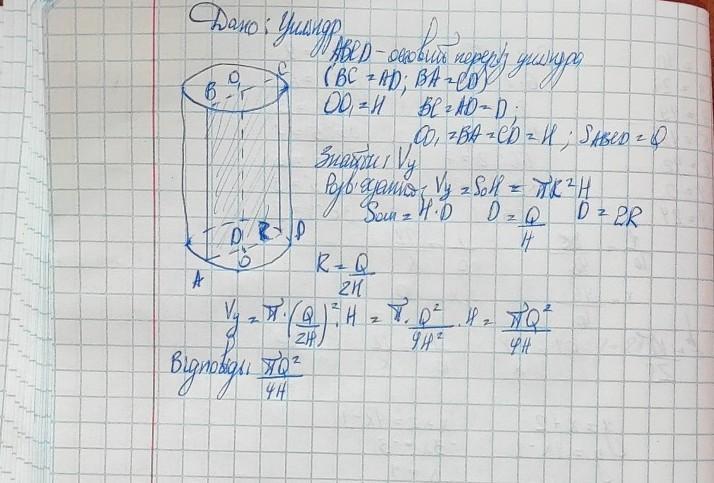 Дано: Циліндр
ABCD - осьовий переріз циліндра
(BC = AD; BA = CD)
OO₁ = H BC = AD = D;
OO₁ = BA = CD = H; SABCD = Q
Знайти: Vц
Розв'язання: Vц = SоH = πR²H
Sосн = H·D D = Q/H D = 2R
R = Q/2H
Vц = π·(Q/2H)²·H = π·Q²/4H²·H = πQ²/4H
Відповідь: πQ²/4H
O₁ C
B
D R D
O
A